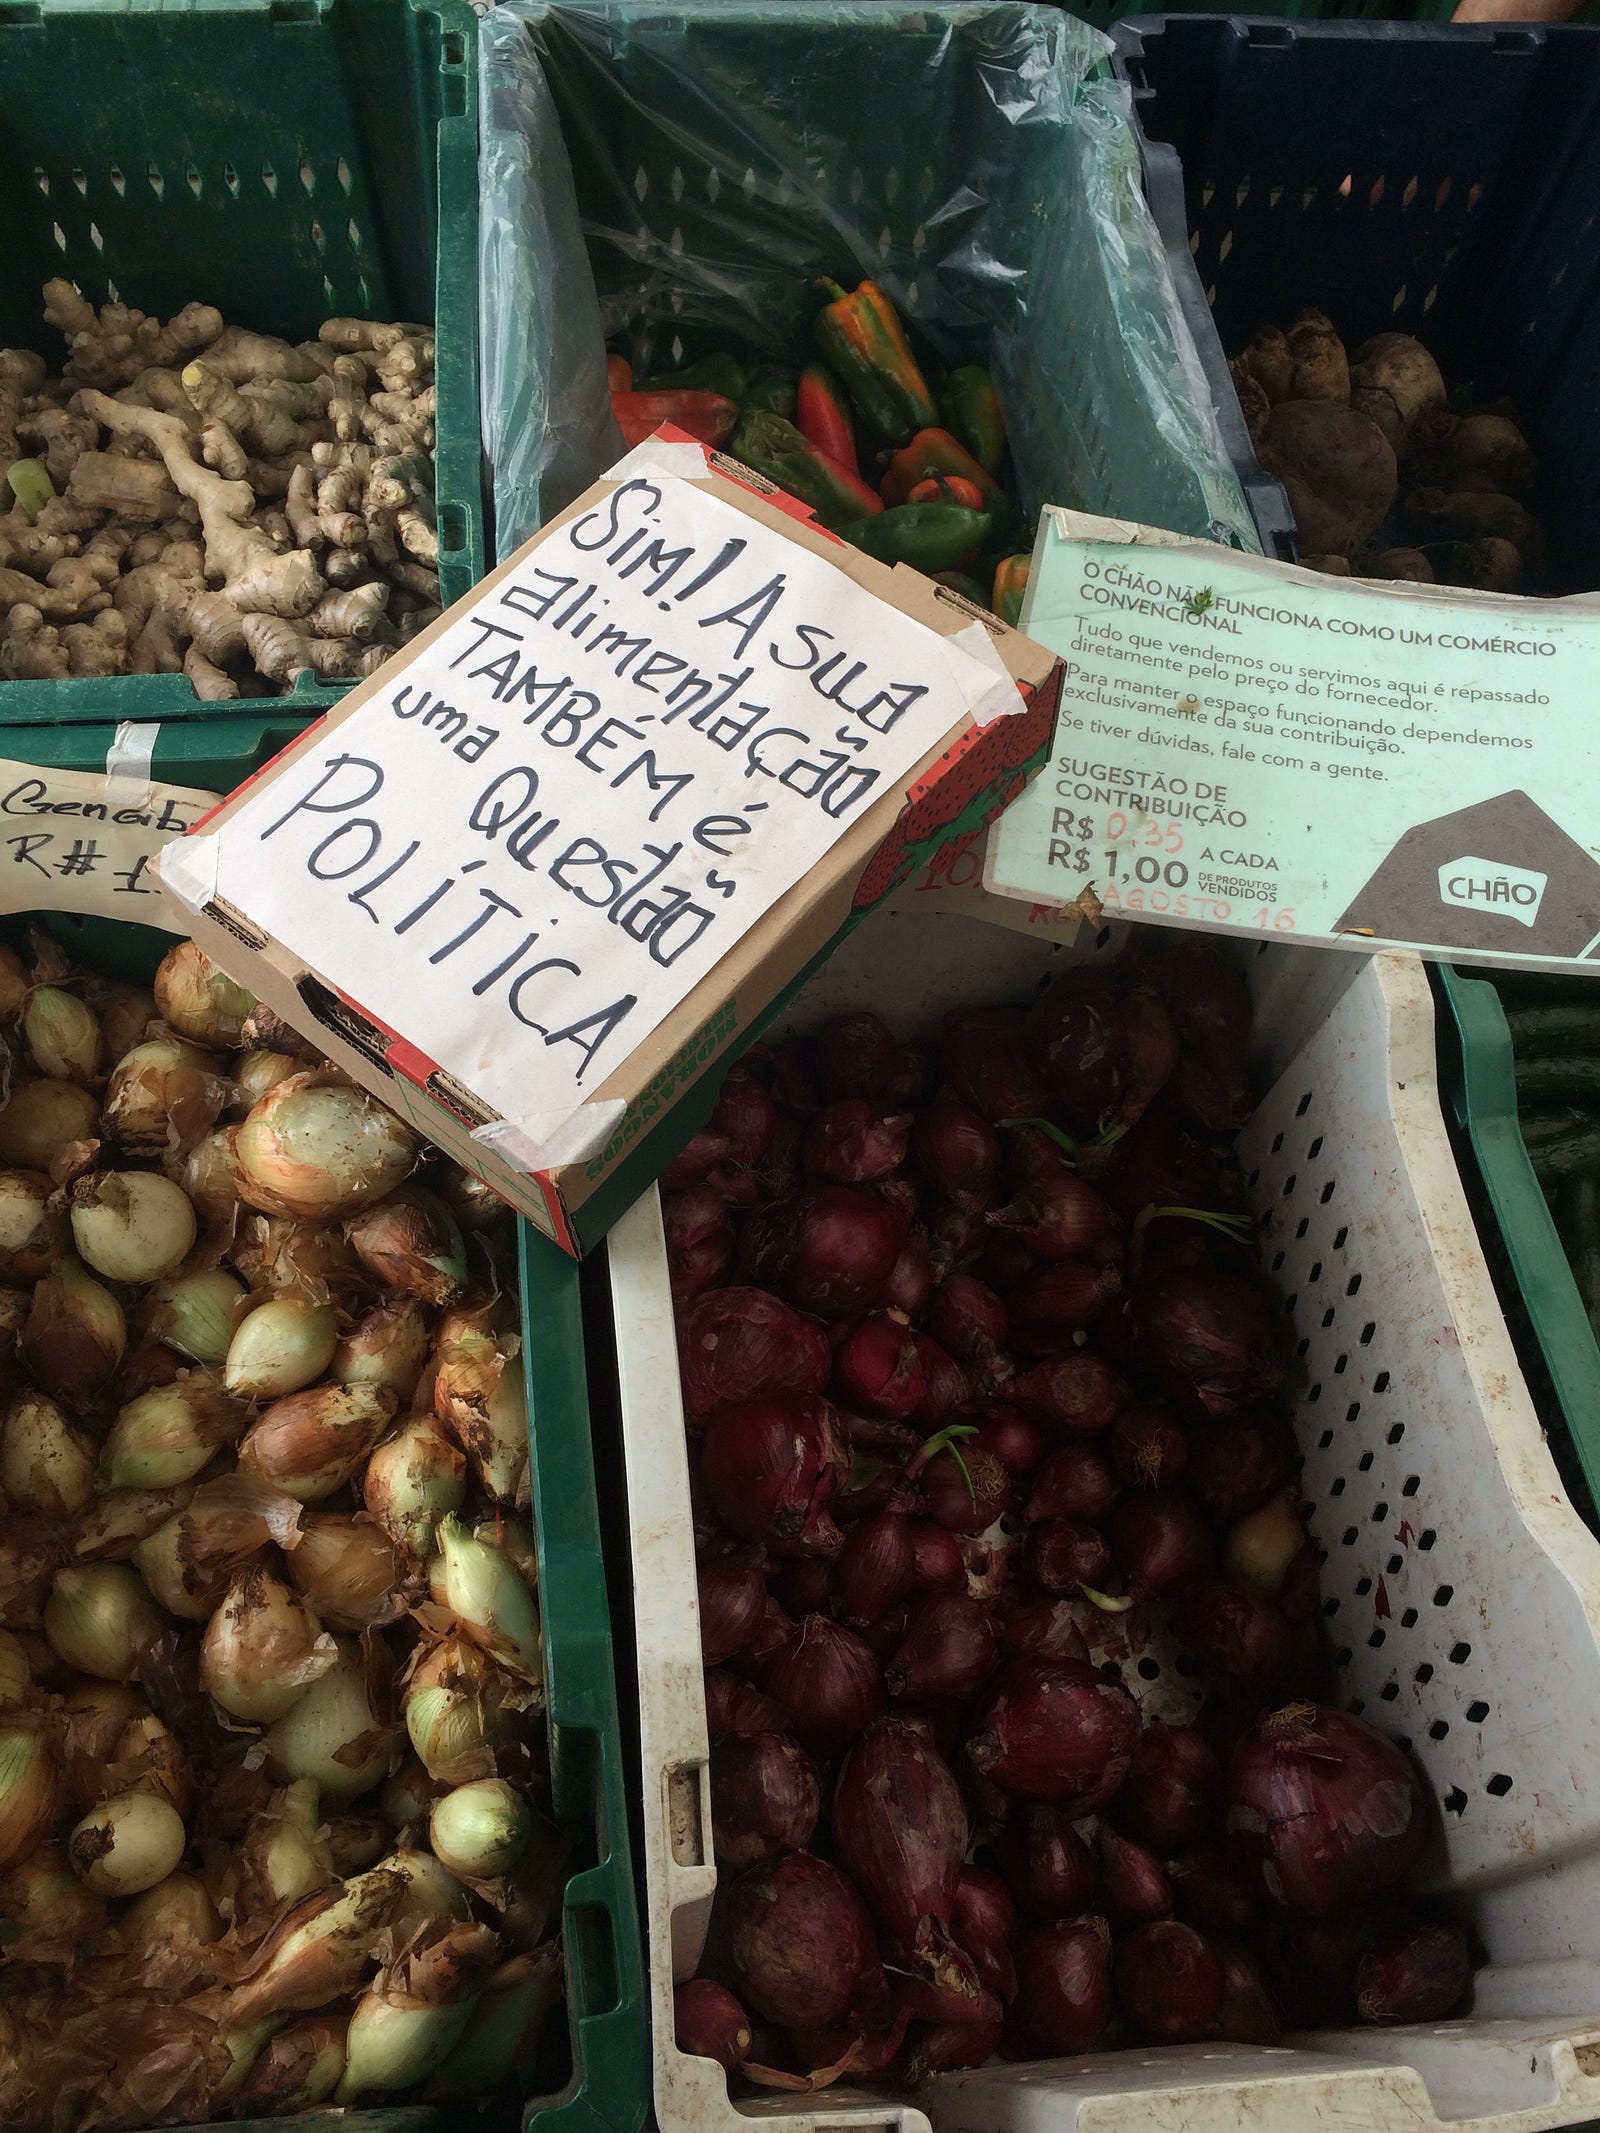 Sim! A sua
alimentação
TAMBÉM é
uma Questão
POLÍTICA.
O CHÃO NÃO FUNCIONA COMO UM COMÉRCIO
CONVENCIONAL
Tudo que vendemos ou servimos aqui é repassado
diretamente pelo preço do fornecedor.
Para manter o espaço funcionando dependemos
exclusivamente da sua contribuição.
Se tiver dúvidas, fale com a gente.
SUGESTÃO DE
CONTRIBUIÇÃO
R$ 0,35
R$ 1,00 A CADA
DE PRODUTOS
VENDIDOS
AGOSTO 16
CHÃO
Gengib
R# 1
MORANGOS